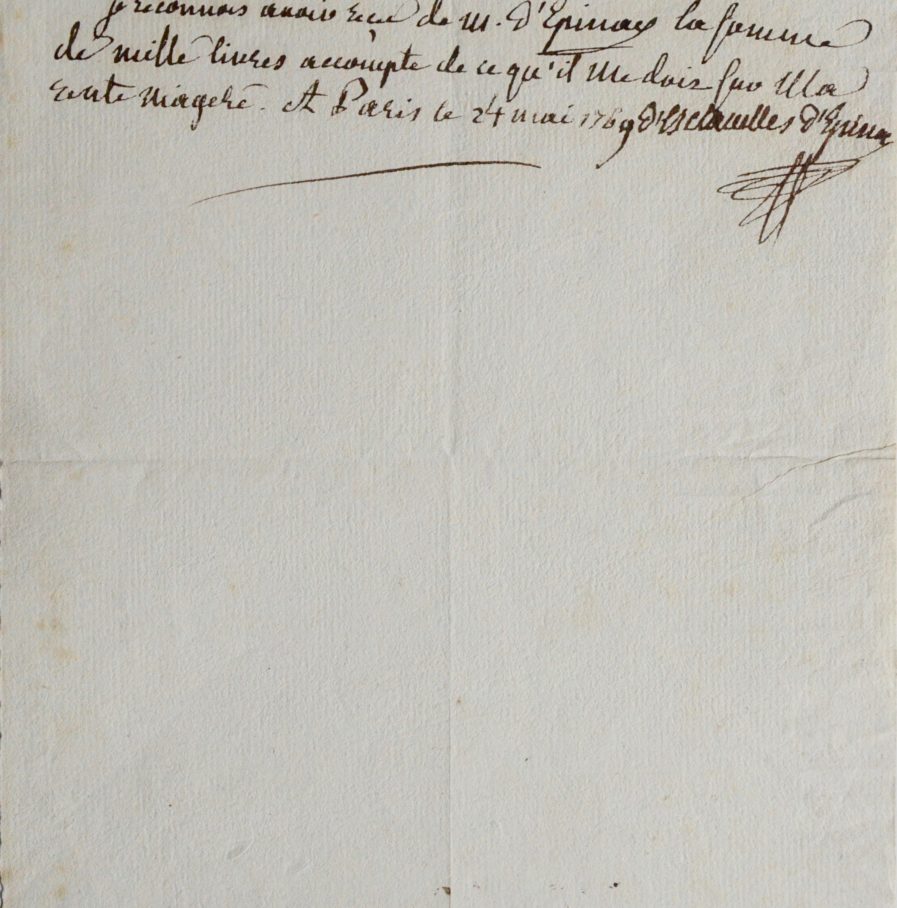 je reconnois avoir recu de m. d'Epinay la somme
de mille livres accompte de ce qu'il me doit sur Ma
rente viagere. A Paris le 24 mai 1769 d'Esclavelles d'Epinay